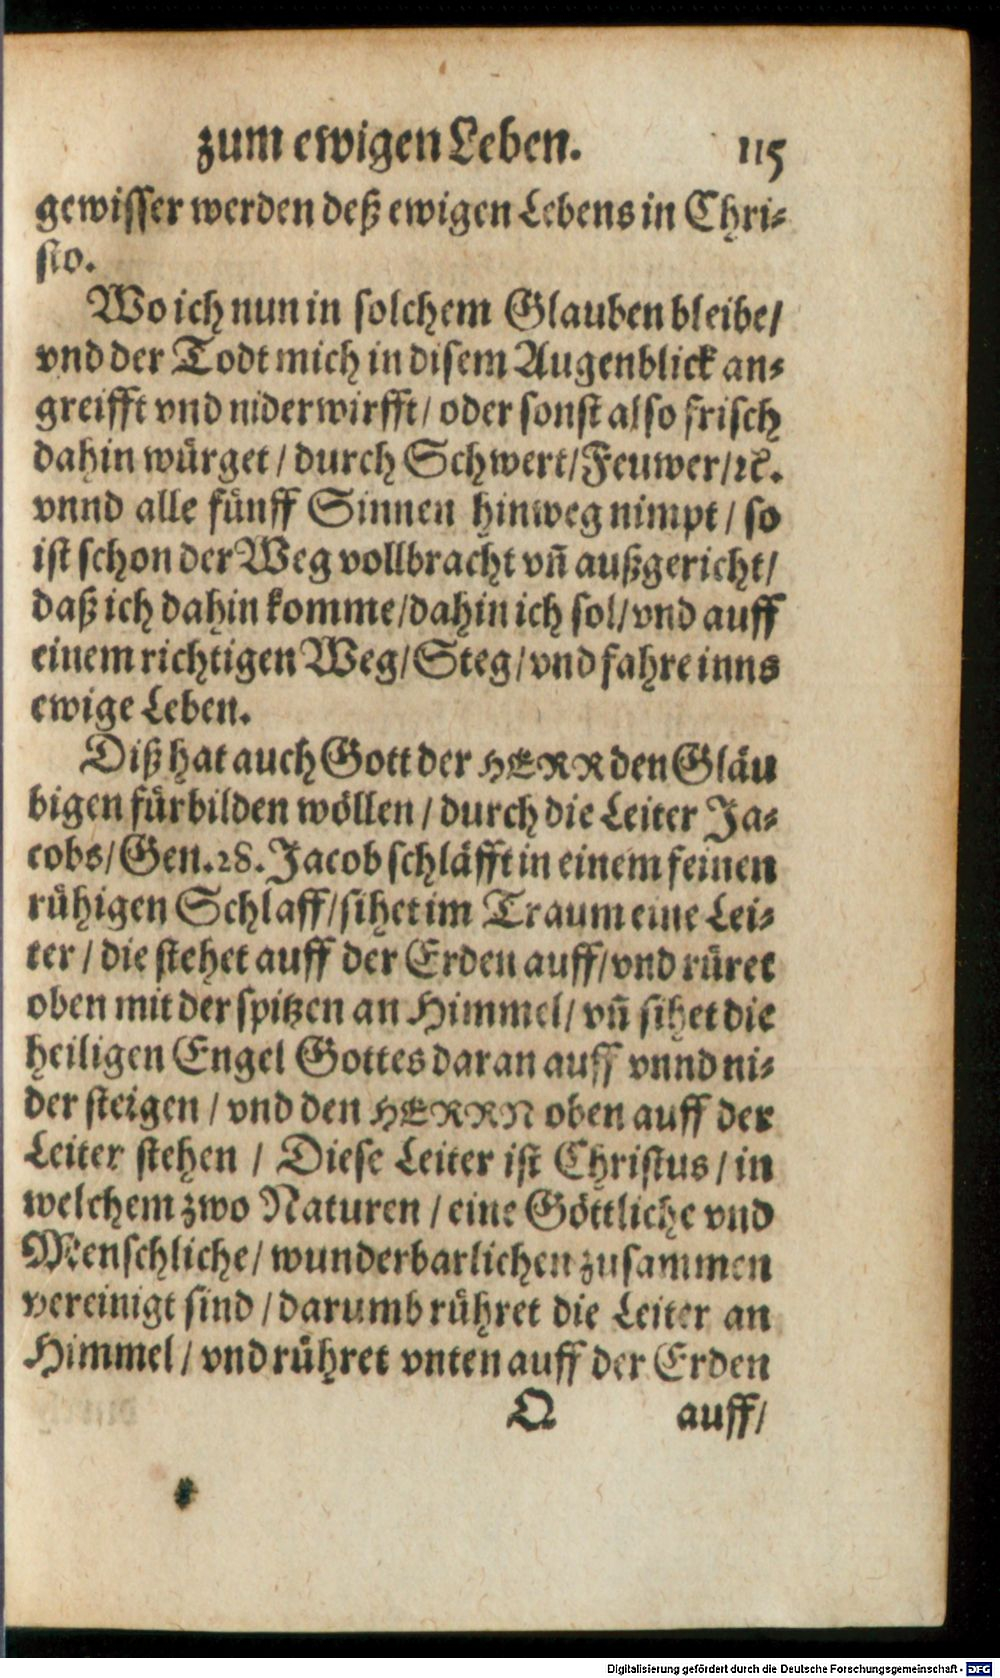 zum ewigen Leben. 115
gewisser werden deß ewigen Lebens in Chri-
sto.
Wo ich nun in solchem Glauben bleibe/
vnd der Todt mich in disem Augenblick an-
greifft vnd niderwirfft/ oder sonst also frisch
dahin würget/ durch Schwert/Feuwer/ꝛc.
vnnd alle fünff Sinnen hinweg nimpt/ so
ist schon der Weg vollbracht vñ außgericht/
daß ich dahin komme/dahin ich sol/vnd auff
einem richtigen Weg/Steg/vnd fahre inns
ewige Leben.
Diß hat auch Gott der HERR den Gläu
bigen fürbilden wöllen/ durch die Leiter Ja-
cobs/Gen.28. Jacob schläfft in einem feinen
rühigen Schlaff/sihet im Traum eine Lei-
ter/ die stehet auff der Erden auff/vnd rüret
oben mit der spitzen an Himmel/ vñ sihet die
heiligen Engel Gottes daran auff vnnd ni-
der steigen/ vnd den HERRN oben auff der
Leiter stehen/ Diese Leiter ist Christus/ in
welchem zwo Naturen/ eine Göttliche vnd
Menschliche/ wunderbarlichen zusammen
vereinigt sind/ darumb rühret die Leiter an
Himmel/ vnd rühret vnten auff der Erden
Q auff/
Digitalisierung gefördert durch die Deutsche Forschungsgemeinschaft - DFG